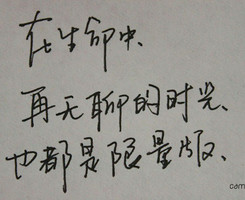 在生命中、
再无聊的时光、
也都是限量版、
cam